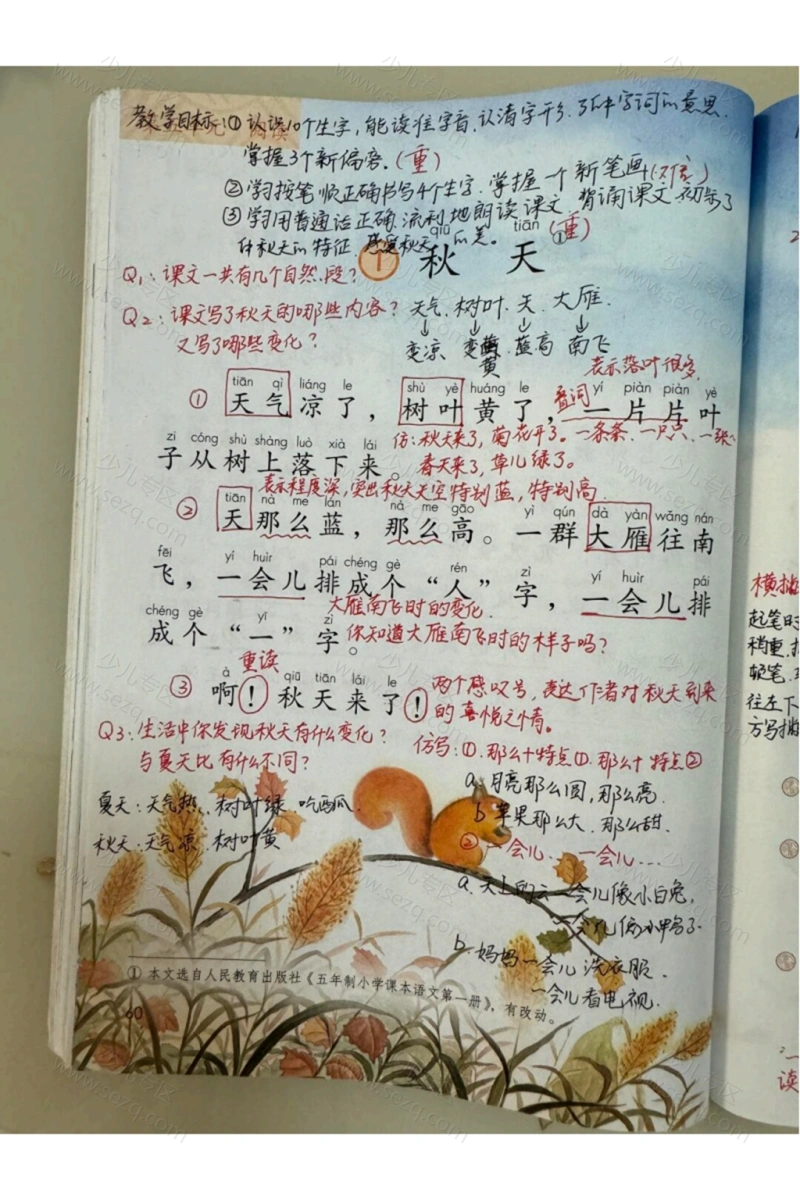 教学目标:①认识10个生字,能读准字音、认清字形、了解字词的意思。
掌握3个新偏旁。(重)
②学习按笔顺正确书写4个生字。掌握一个新笔画
③学习用普通话正确、流利地朗读课文。背诵课文。初步了
(重)
qiū tiān
1 秋天①
Q1:课文一共有几个自然段?
Q2:课文写了秋天的哪些内容?天气、树叶、天、大雁
又写了哪些变化?
变凉 变黄 蓝、高 南飞
表示落叶很多
tiān qì liáng le shù yè huáng le yí piàn piàn yè
① 天气凉了,树叶黄了,一片片叶
叠词
zi cóng shù shàng luò xià lái
子从树上落下来。
仿:秋天来了,菊花开了。一条条、一只只、一张张
春天来了,草儿绿了。
表示程度深,突出秋天天空特别蓝,特别高
tiān nà me lán nà me gāo yì qún dà yàn wǎng nán
② 天那么蓝,那么高。一群大雁往南
fēi yí huìr pái chéng gè rén zì yí huìr pái
飞,一会儿排成个“人”字,一会儿排
大雁南飞时的变化
chéng gè yī zì
成个“一”字。
你知道大雁南飞时的样子吗?
重读
à qiū tiān lái le
③ 啊!秋天来了!
两个感叹号,表达作者对秋天到来
的喜悦之情。
Q3:生活中你发现秋天有什么变化?
与夏天比有什么不同?
仿写:①.那么+特点①.那么+特点②
a.月亮那么圆,那么亮.
夏天:天气热、树叶绿、吃西瓜
b 苹果那么大、那么甜.
秋天:天气凉、树叶黄
②一会儿…一会儿…
a.天上的云一会儿像小白兔,
一会儿像小鸭子
b.妈妈一会儿洗衣服.
一会儿看电视.
① 本文选自人民教育出版社《五年制小学课本语文第一册》,有改动。
60
横撇
起笔时
往左下
读
少儿专区
www.sezq.com